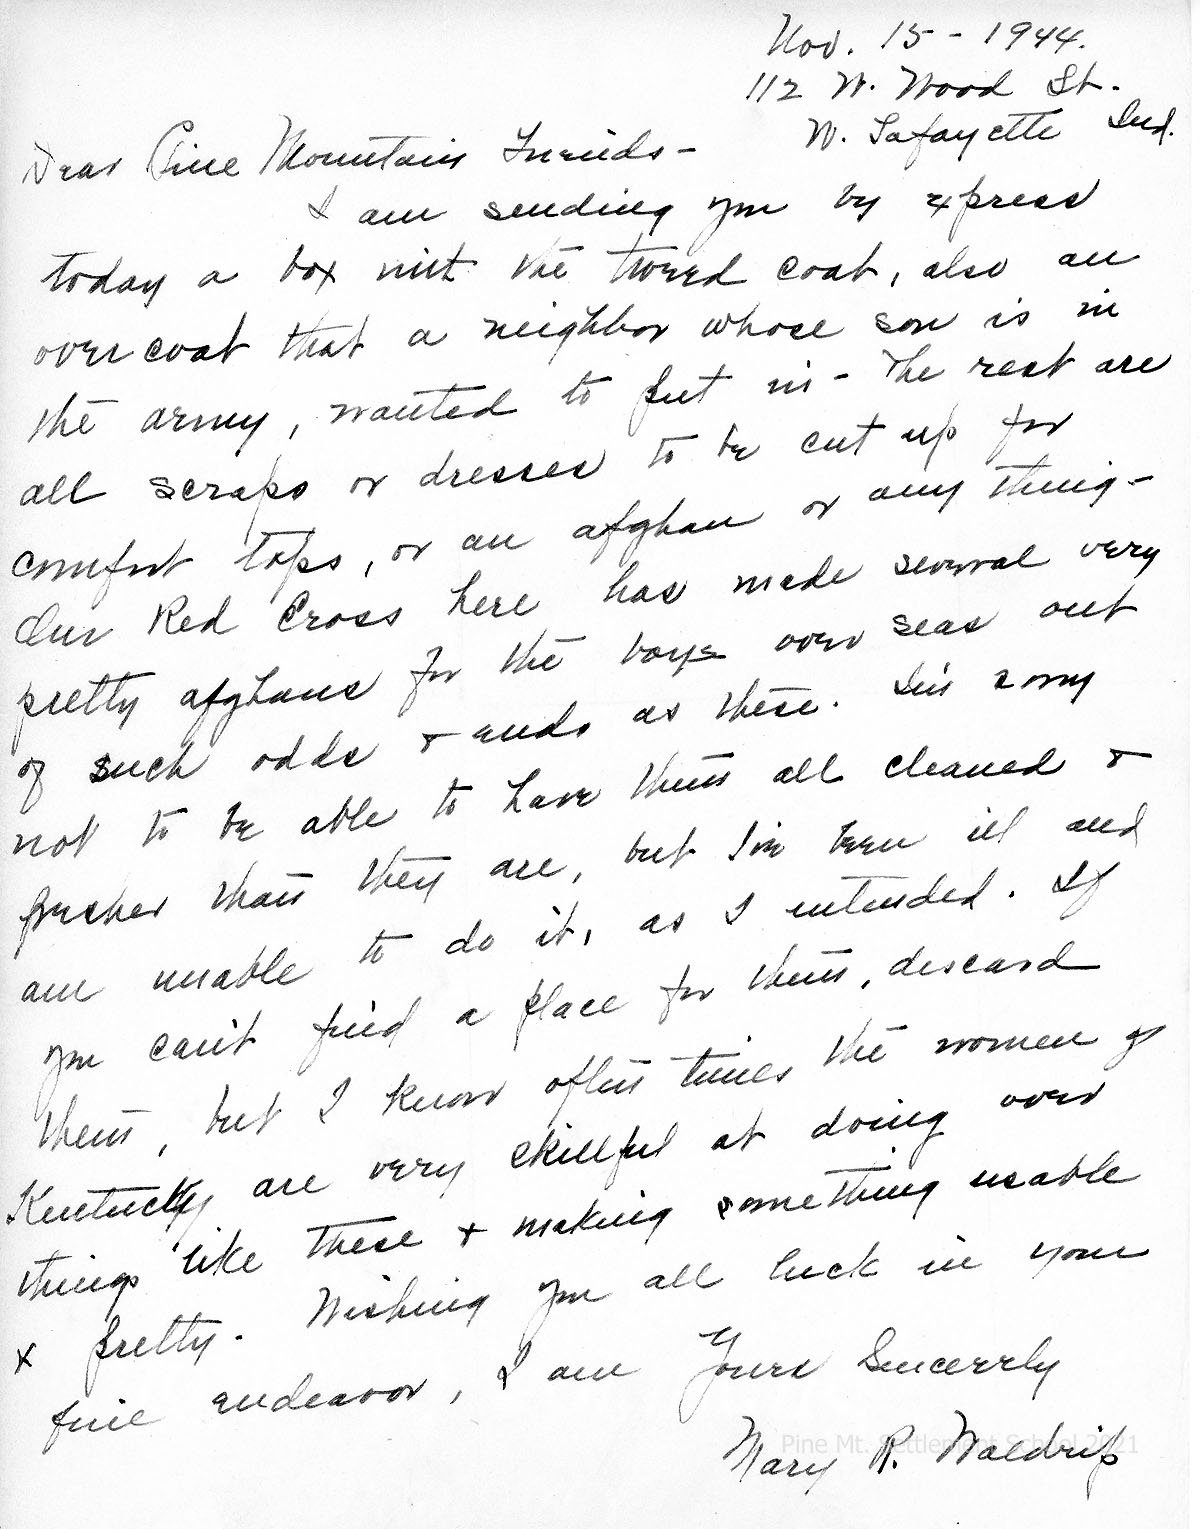 Nov. 15 - 1944.
112 W. Wood St.
W. Lafayette Ind.
Dear Pine Mountain Friends -
I am sending you by express
today a box with the tweed coat, also an
overcoat that a neighbor whose son is in
the army, wanted to put in - The rest are
all scraps or dresses to be cut up for
comfort tops, or an afghan or any thing -
Our Red Cross here has made several very
pretty afghans for the boys over seas out
of such odds & ends as these. I'm sorry
not to be able to have them all cleaned &
fresher than they are, but I've been ill and
am unable to do it, as I intended. If
you can't find a place for them, discard
them, but I know often times the women of
Kentucky are very skillful at doing over
things like these & making something usable
& pretty. Wishing you all luck in your
fine endeavor, I am Yours Sincerely
Mary R. Waldrip
Pine Mt. Settlement School 2021